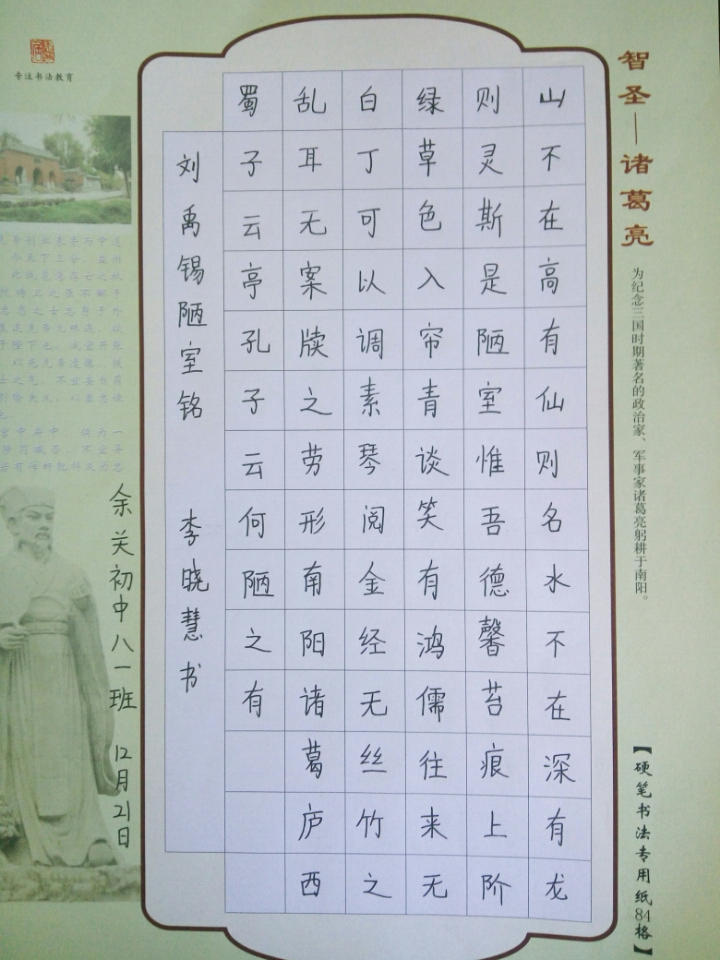 智圣—诸葛亮
为纪念三国时期著名的政治家、军事家诸葛亮躬耕于南阳。
【硬笔书法专用纸84格】
山不在高有仙则名水不在深有龙
则灵斯是陋室惟吾德馨苔痕上阶
绿草色入帘青谈笑有鸿儒往来无
白丁可以调素琴阅金经无丝竹之
乱耳无案牍之劳形南阳诸葛庐西
蜀子云亭孔子云何陋之有
刘禹锡陋室铭 李晓慧书
余关初中八一班 12月21日
专注书法教育